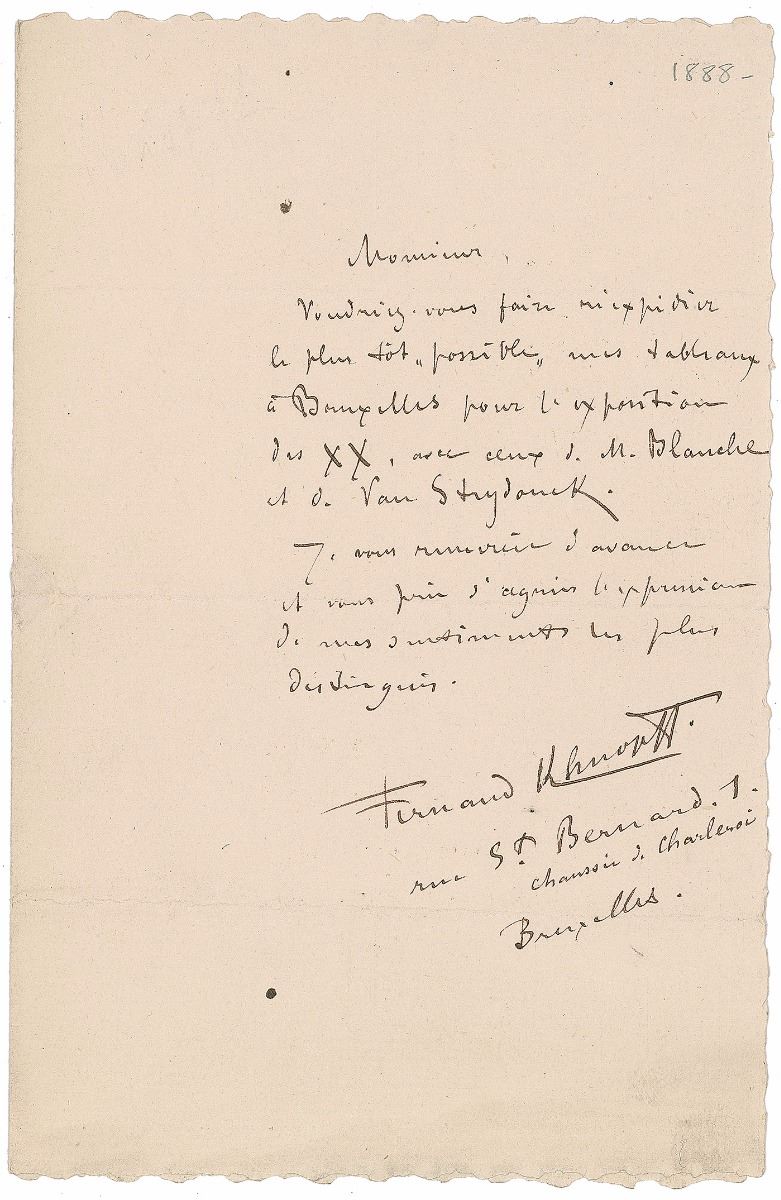 1888-
Monsieur,
Voudriez-vous faire réexpédier
le plus tôt „possible„ mes tableaux
à Bruxelles pour l'exposition
des XX, avec ceux de M. Blanche
et de Van Strydonck.
Je vous remercie d'avance
et vous prie d'agréer l'expression
de mes sentiments les plus
distingués.
Fernand Khnopff.
rue St. Bernard. 1.
chaussée de Charleroi
Bruxelles.